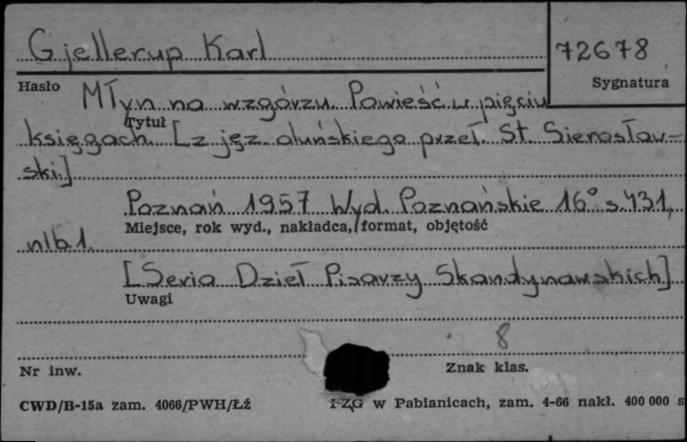 Gjellerup Karl
72678
Hasło
Sygnatura
Młyn na wzgórzu. Powieść w pięciu
Tytuł
księgach. [z jęz. duńskiego przeł. St. Sierosław-
ski.]
Poznań 1957 Wyd. Poznańskie 16° s. 431,
Miejsce, rok wyd., nakładca, format, objętość
nlb 1.
[Seria Dzieł Pisarzy Skandynawskich]
Uwagi
8
Nr inw.
Znak klas.
CWD/B-15a zam. 4066/PWH/Łź
ŁZG w Pabianicach, zam. 4-66 nakł. 400 000 s